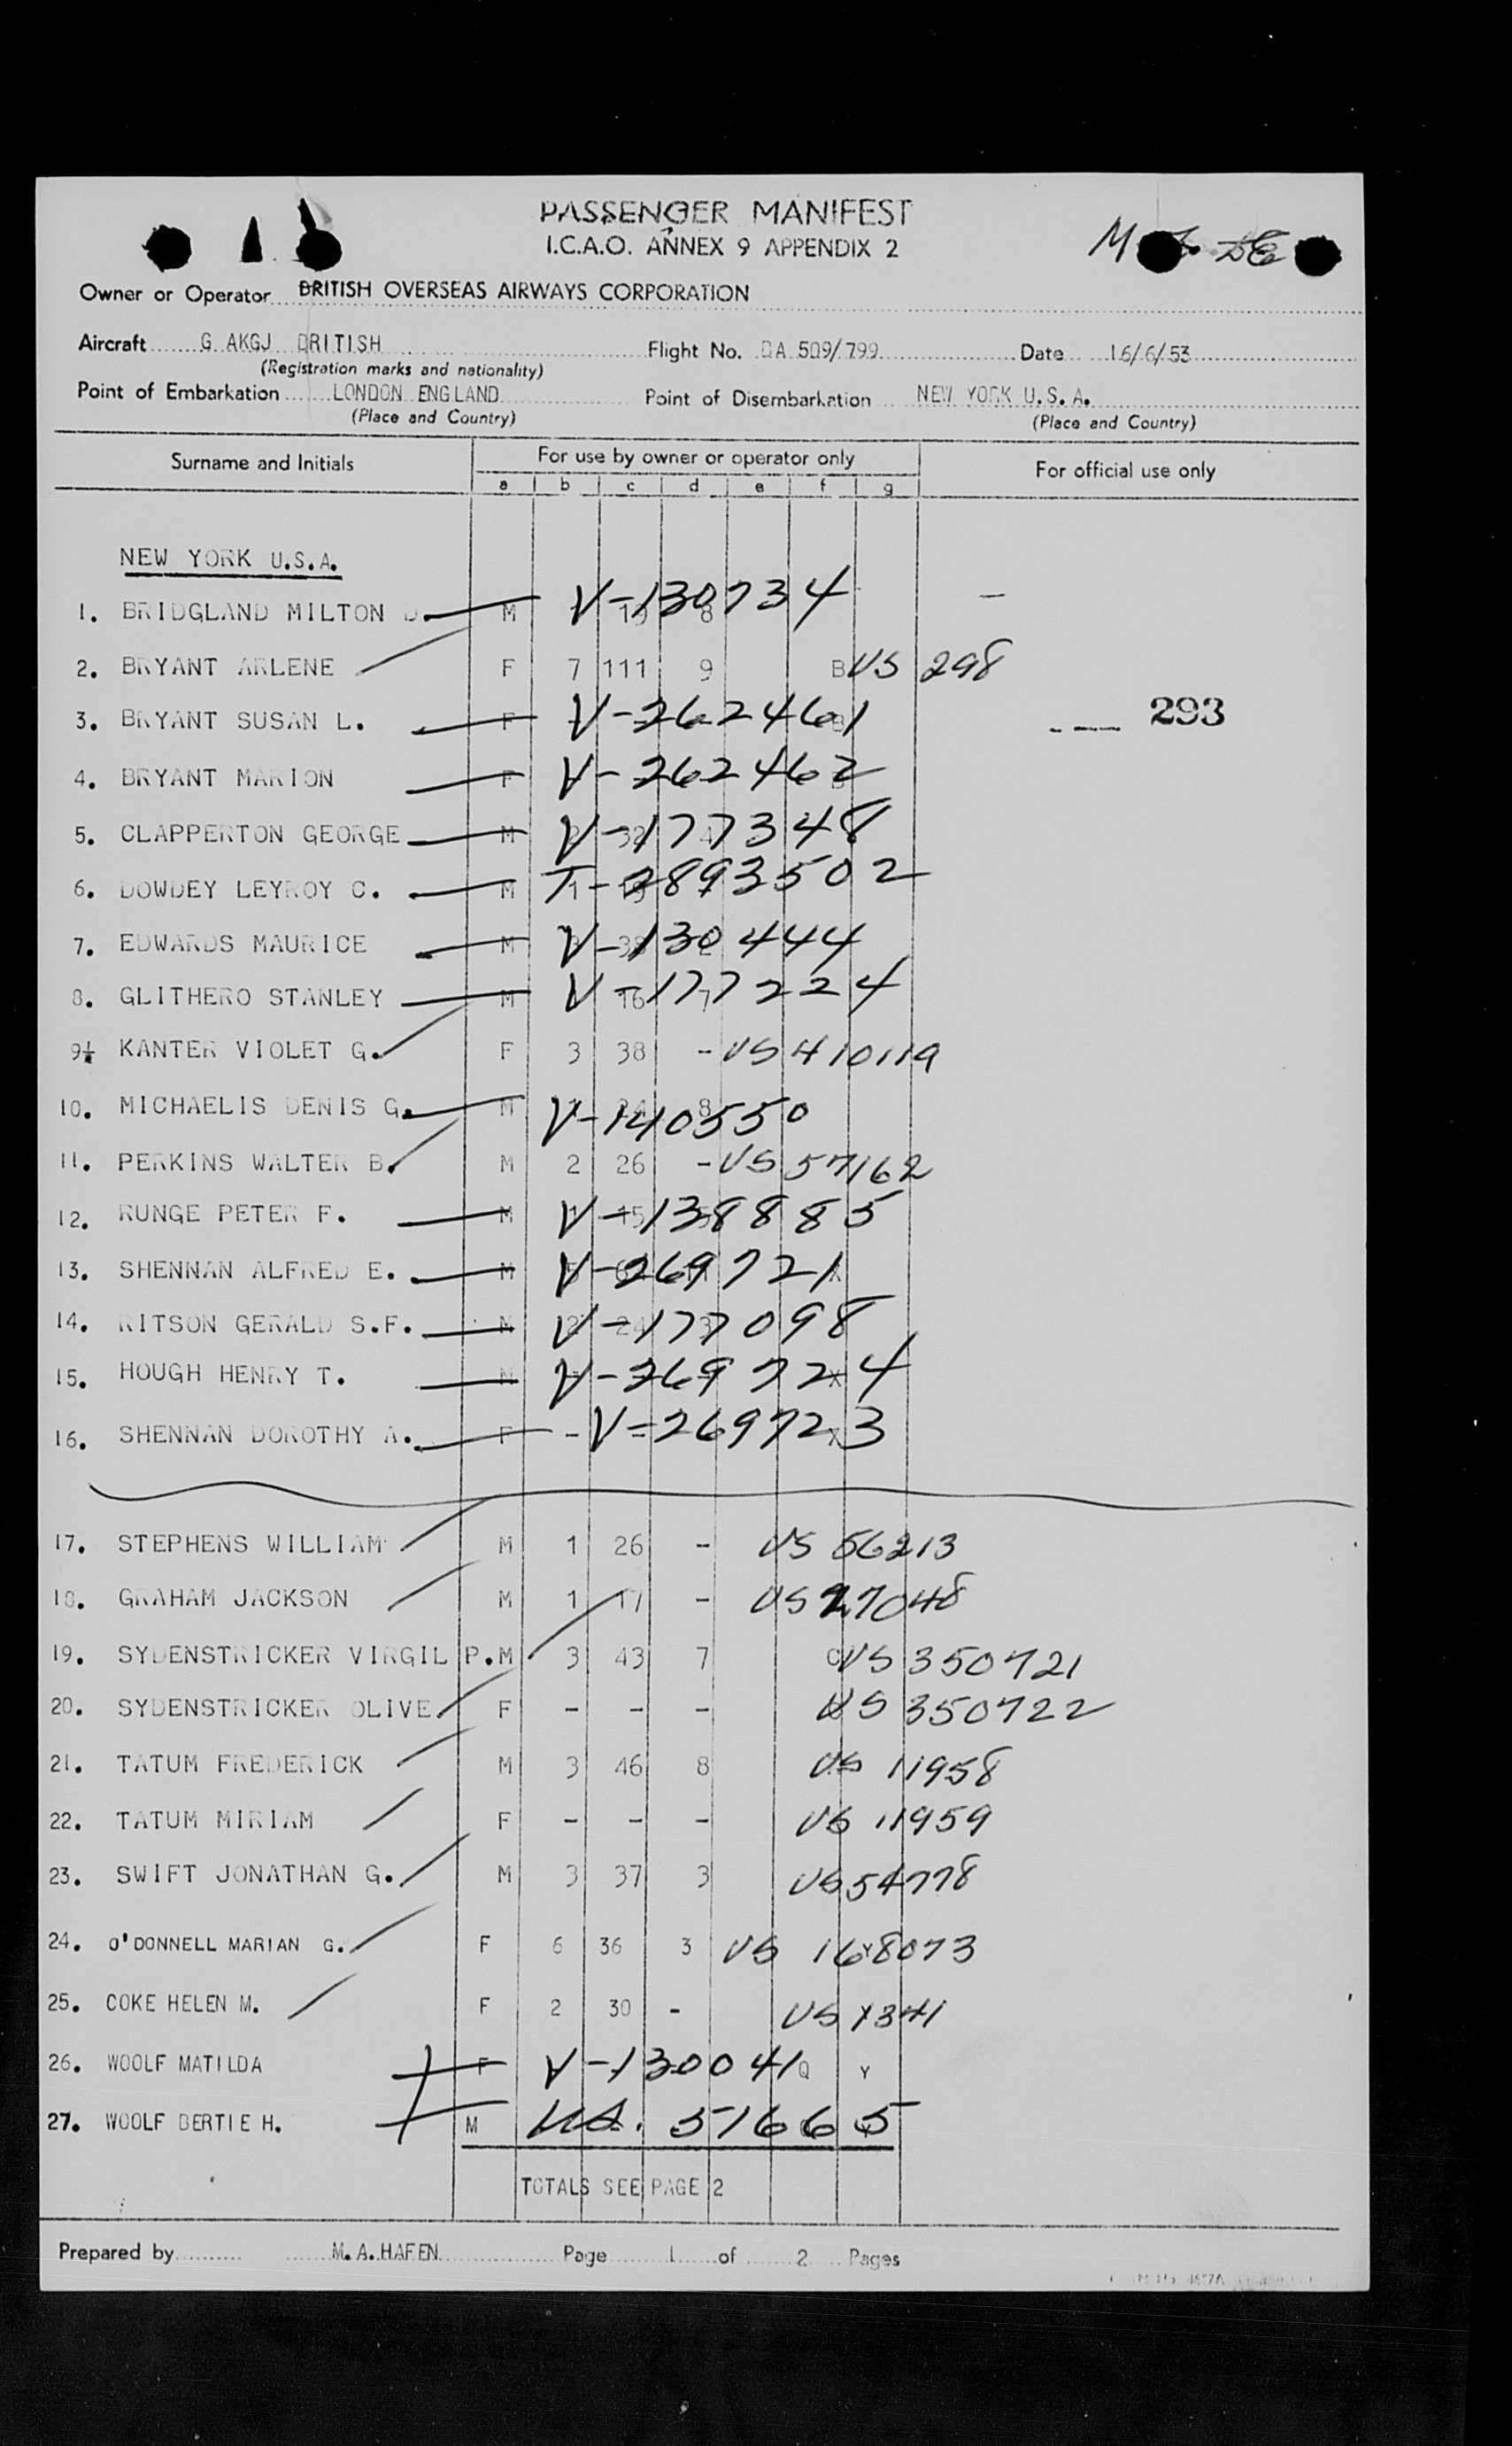 PASSENGER MANIFEST
I.C.A.O. ANNEX 9 APPENDIX 2
Owner or Operator BRITISH OVERSEAS AIRWAYS CORPORATION
Aircraft G AKGJ BRITISH Flight No. BA 509/799 Date 16/6/53
(Registration marks and nationality)
Point of Embarkation LONDON ENGLAND Point of Disembarkation NEW YORK U.S.A.
(Place and Country) (Place and Country)
Surname and Initials For use by owner or operator only For official use only
a b c d e f g
NEW YORK U.S.A.
1. BRIDGLAND MILTON D. M V-130734 —
2. BRYANT ARLENE F 7 111 9 B US 298
3. BRYANT SUSAN L. F V-262461 293
4. BRYANT MARION F V-262462
5. CLAPPERTON GEORGE M V-177348
6. DOWDEY LEYROY C. M T-2893502
7. EDWARDS MAURICE M V-130444
8. GLITHERO STANLEY M V-177224
9. KANTER VIOLET G. F 3 38 - US 410119
10. MICHAELIS DENIS G. M V-140550
11. PERKINS WALTER B. M 2 26 - US 57162
12. RUNGE PETER F. M V-138885
13. SHENNAN ALFRED E. M V-269721
14. RITSON GERALD S.F. M V-177098
15. HOUGH HENRY T. M V-269724
16. SHENNAN DOROTHY A. F - V-269723
17. STEPHENS WILLIAM M 1 26 - US 56213
18. GRAHAM JACKSON M 1 17 - US 27048
19. SYDENSTRICKER VIRGIL P. M 3 43 7 C US 350721
20. SYDENSTRICKER OLIVE F - - - US 350722
21. TATUM FREDERICK M 3 46 8 US 11958
22. TATUM MIRIAM F - - - US 11959
23. SWIFT JONATHAN G. M 3 37 3 US 54778
24. O'DONNELL MARIAN G. F 6 36 3 US 168073
25. COKE HELEN M. F 2 30 - US
26. WOOLF MATILDA F V-130041 Q Y
27. WOOLF BERTIE H. M US. 51665
TOTALS SEE PAGE 2
Prepared by M.A.HAFEN Page 1 of 2 Pages